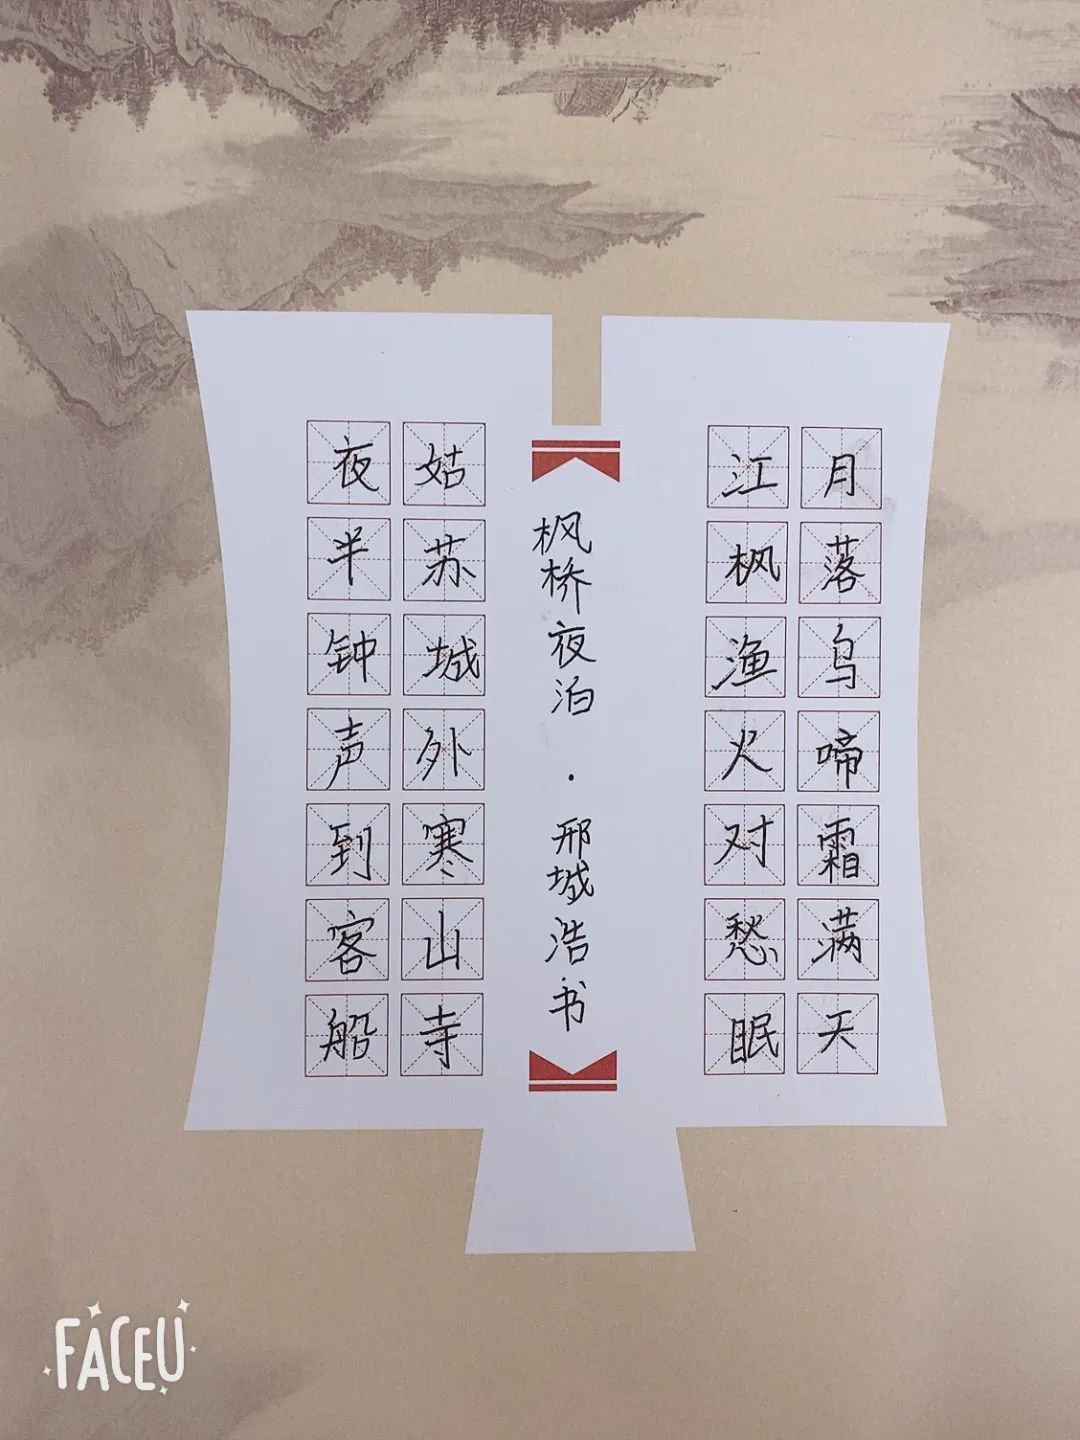 月落乌啼霜满天
江枫渔火对愁眠
枫桥夜泊·邢城浩书
姑苏城外寒山寺
夜半钟声到客船
FACEU